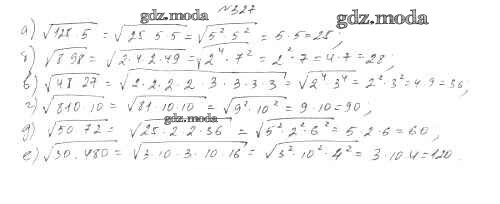 №327
gdz.moda
gdz.moda
а) √128·5 = √25·5·5 = √5²·5² = 5·5=25;
б) √8·98 = √2·4·2·49 = √2⁴·7² = 2²·7=4·7=28;
в) √48·27 = √2·2·2·2·3·3·3·3 = √2⁴3⁴ = 2²·3²=4·9=36;
г) √810·10 = √81·10·10 = √9²·10² = 9·10=90;
gdz.moda
д) √50·72 = √25·2·2·36 = √5²·2²·6² = 5·2·6=60,
е) √30·480 = √3·10·3·10·16 = √3²·10²·4² = 3·10·4=120.